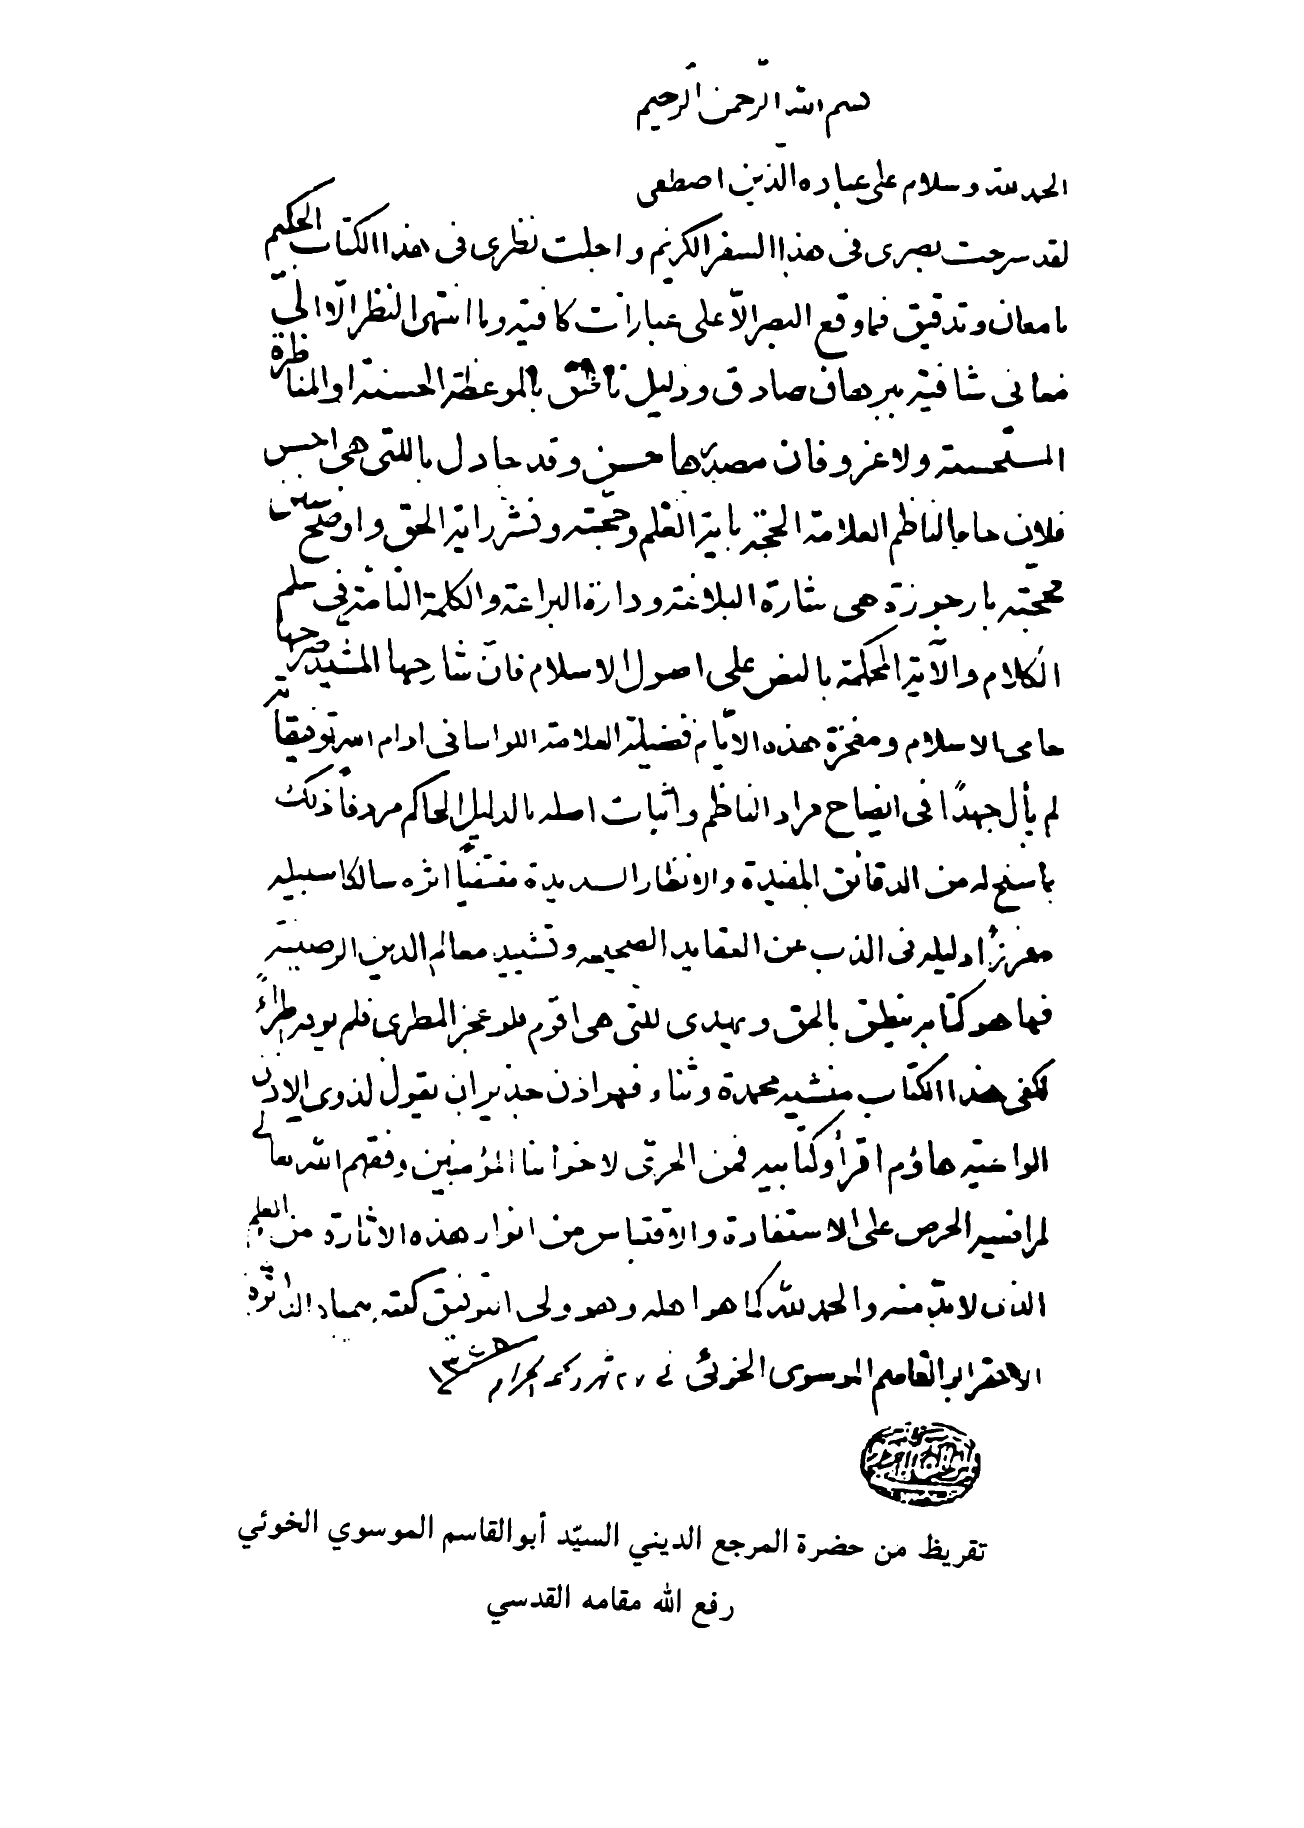 بسم الله الرحمن الرحيم
الحمد لله وسلام على عباده الذين اصطفى
لقد سرحت بصرى فى هذا السفر الكريم واجلت نظرى فى هذا الكتاب الحكيم
بامعان وتدقيق فما وقع البصر الّا على عبارات كافية وما انتهى النظر الّا الى
معانى شافية ببرهان صادق ودليل ناطق بالموعظة الحسنة او المناظرة
المستحسنة ولا غرو فان مصدرها حسن وقد جادل باللتى هى احسن
فلان جاء الناظم العلامة الحجة بآية العلم وحجته ونشر راية الحق واوضح
محجته بارجوزة هى شارة البلاغة ودارة البراعة والكلمة التامة فى علم
الكلام والآية المحكمة بالنص على اصول الاسلام فانّ شارحها المشيد صرحها
حامى الاسلام ومفخرة هذه الايّام فضيلة العلامة اللواسانى ادام الله توفيقاته
لم يأل جهدًا فى ايضاح مراد الناظم واثبات اصله بالدليل الحاكم مردفاً ذلك
بما سنح له من الدقائق المفيدة والانظار السديدة مقتفياً اثره سالكا سبيله
معززاً دليله فى الذب عن العقايد الصحيحه وتشييد معالم الدين الرصينة
فها هو كتابه ينطق بالحق ويهدى للتى هى اقوم فلو عجز المطرى فلم يوفه اطراءً
لكفى هذا الكتاب منشيه محمدة وثناء فهو اذن جدير ان يقول لذوى الاذن
الواعية هاؤم اقرأوا كتابيه فمن الحرىّ لاخواننا المؤمنين وفقهم الله تعالى
لمراضيه الحرص على الاستفادة والاقتباس من انوار هذه الاثارة من العلم
الذى لا بدّ منه والحمد لله كما هو اهله وهو ولى التوفيق كتبه بيمناه الداثرة
الاحقر ابو القاسم الموسوى الخوئى فى ٢٧ شهر محرم الحرام ١٣٤٥
تقريظ من حضرة المرجع الديني السيّد أبو القاسم الموسوي الخوئي
رفع الله مقامه القدسي